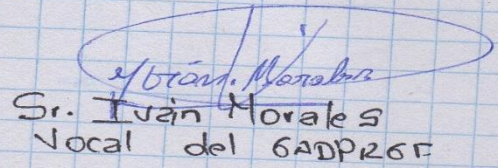 Iván Morales
Sr. Iván Morales
Vocal del GADPRGF